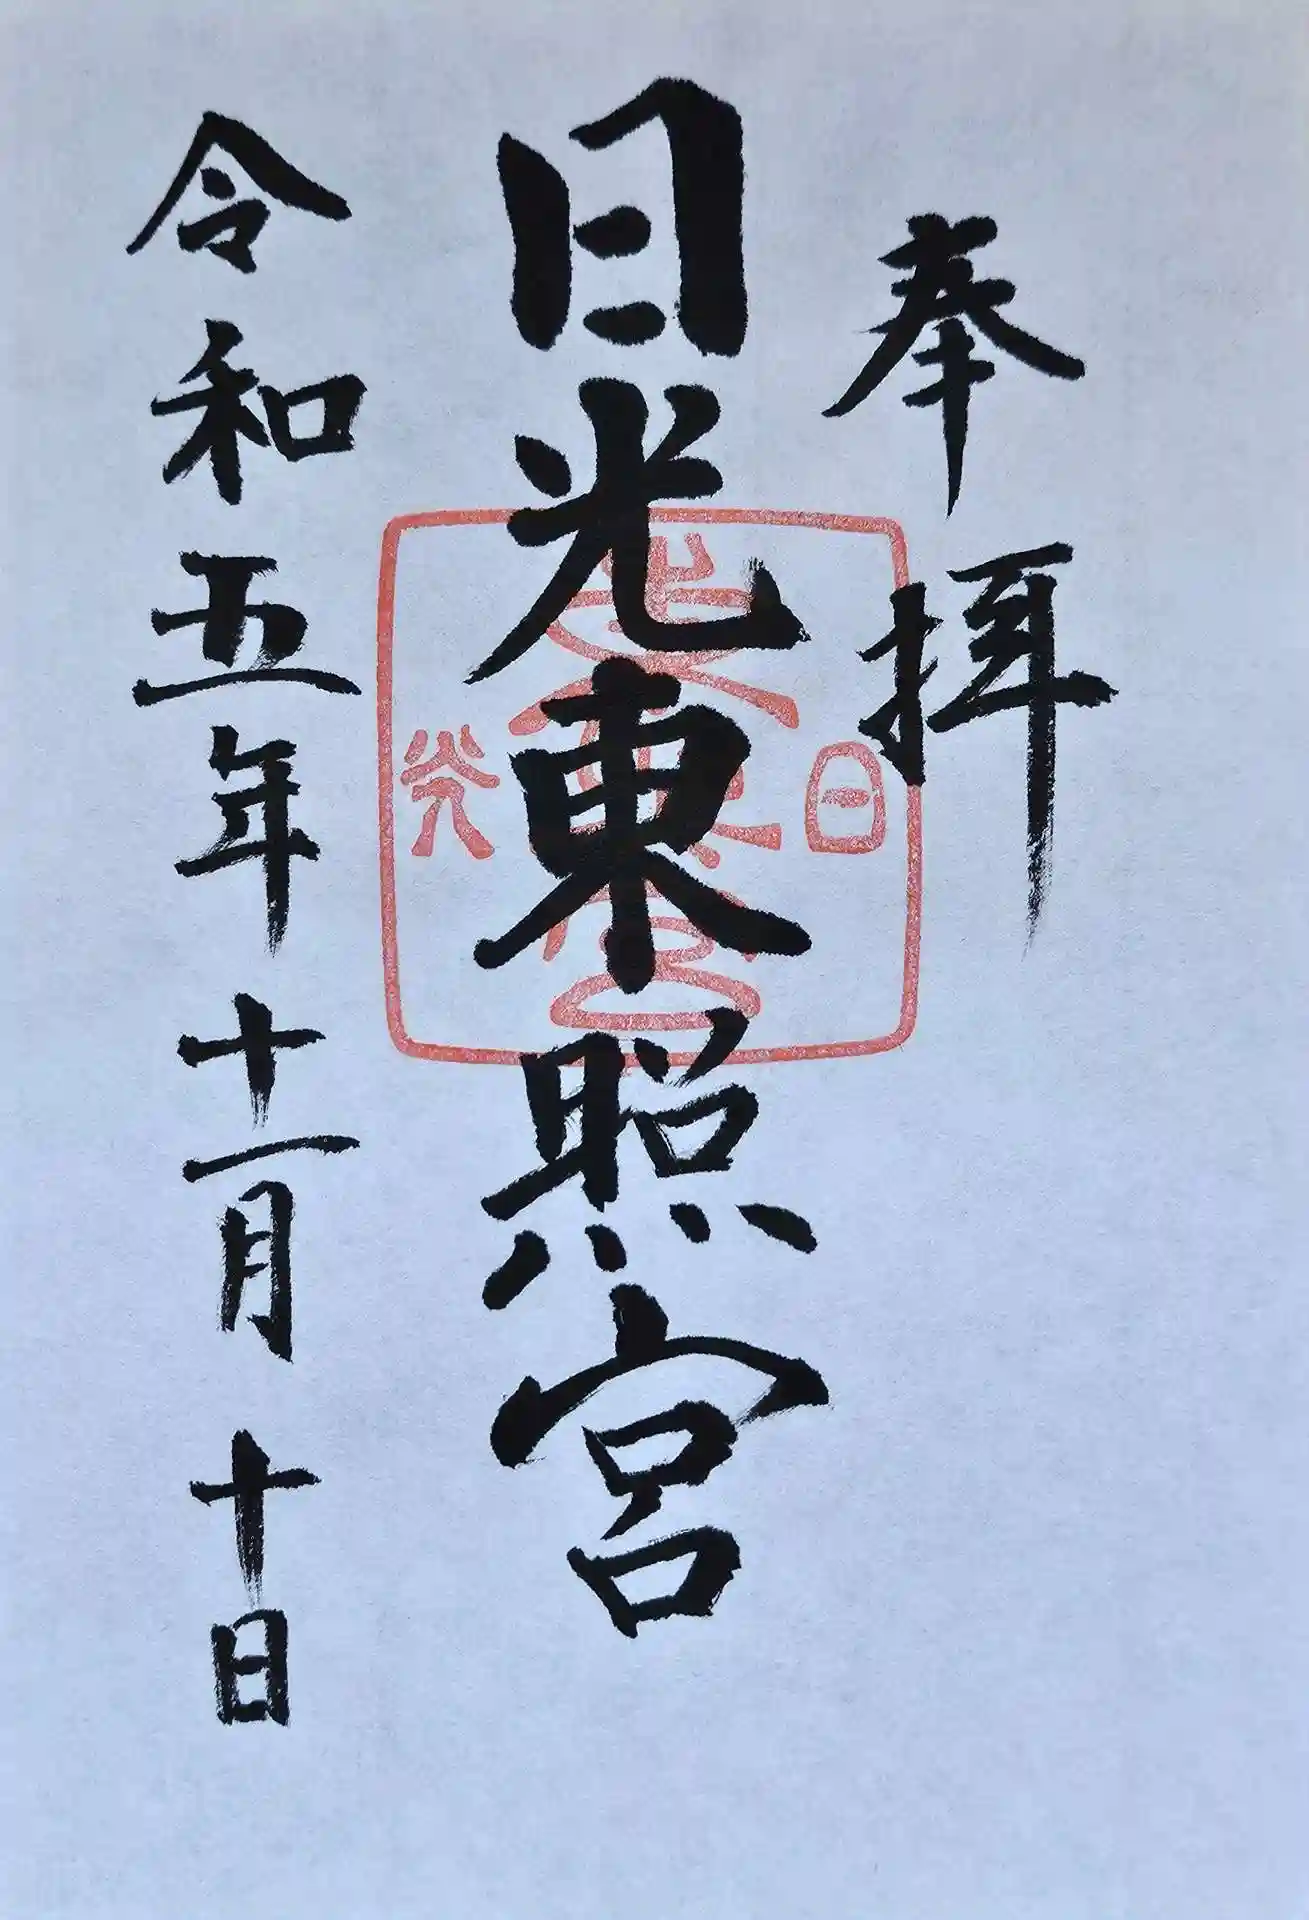 奉拝
日光東照宮
令和五年十一月十日
日
光